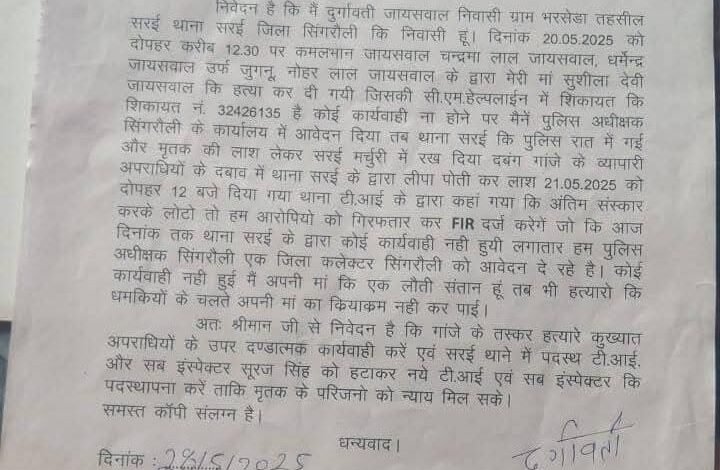 निवेदन है कि मैं दुर्गावती जायसवाल निवासी ग्राम भरसेडा तहसील
सरई थाना सरई जिला सिंगरौली कि निवासी हूं। दिनांक 20.05.2025 को
दोपहर करीब 12.30 पर कमलभान जायसवाल चन्द्रमा लाल जायसवाल, धर्मेन्द्र
जायसवाल उर्फ जुगनू, नोहर लाल जायसवाल के द्वारा मेरी मां सुशीला देवी
जायसवाल कि हत्या कर दी गयी जिसकी सी.एम.हेल्पलाईन में शिकायत कि
शिकायत नं. 32426135 है कोई कार्यवाही ना होने पर मैनें पुलिस अधीक्षक
सिंगरौली के कार्यालय में आवेदन दिया तब थाना सरई कि पुलिस रात में गई
और मृतक की लाश लेकर सरई मर्चुरी में रख दिया दबंग गांजे के व्यापारी
अपराधियों के दबाव में थाना सरई के द्वारा लीपा पोती कर लाश 21.05.2025 को
दोपहर 12 बजे दिया गया थाना टी.आई के द्वारा कहां गया कि अंतिम संस्कार
करके लोटो तो हम आरोपियो को गिरफतार कर FIR दर्ज करेगें जो कि आज
दिनांक तक थाना सरई के द्वारा कोई कार्यवाही नही हुयी लगातार हम पुलिस
अधीक्षक सिंगरौली एक जिला कलेक्टर सिंगरौली को आवेदन दे रहे है। कोई
कार्यवाही नही हुई मैं अपनी मां कि एक लौती संतान हूं तब भी हत्यारो कि
धमकियों के चलते अपनी मां का कियाकम नही कर पाई।
अतः श्रीमान जी से निवेदन है कि गांजे के तस्कर हत्यारे कुख्यात
अपराधियों के उपर दण्डात्मक कार्यवाही करें एवं सरई थाने में पदस्थ टी.आई.
और सब इंस्पेक्टर सूरज सिंह को हटाकर नये टी.आई एवं सब इंस्पेक्टर कि
पदस्थापना करें ताकि मृतक के परिजनो को न्याय मिल सके।
समस्त कॉपी संलग्न है।
धन्यवाद।
दिनांक : 28/5/2025 दुर्गावती